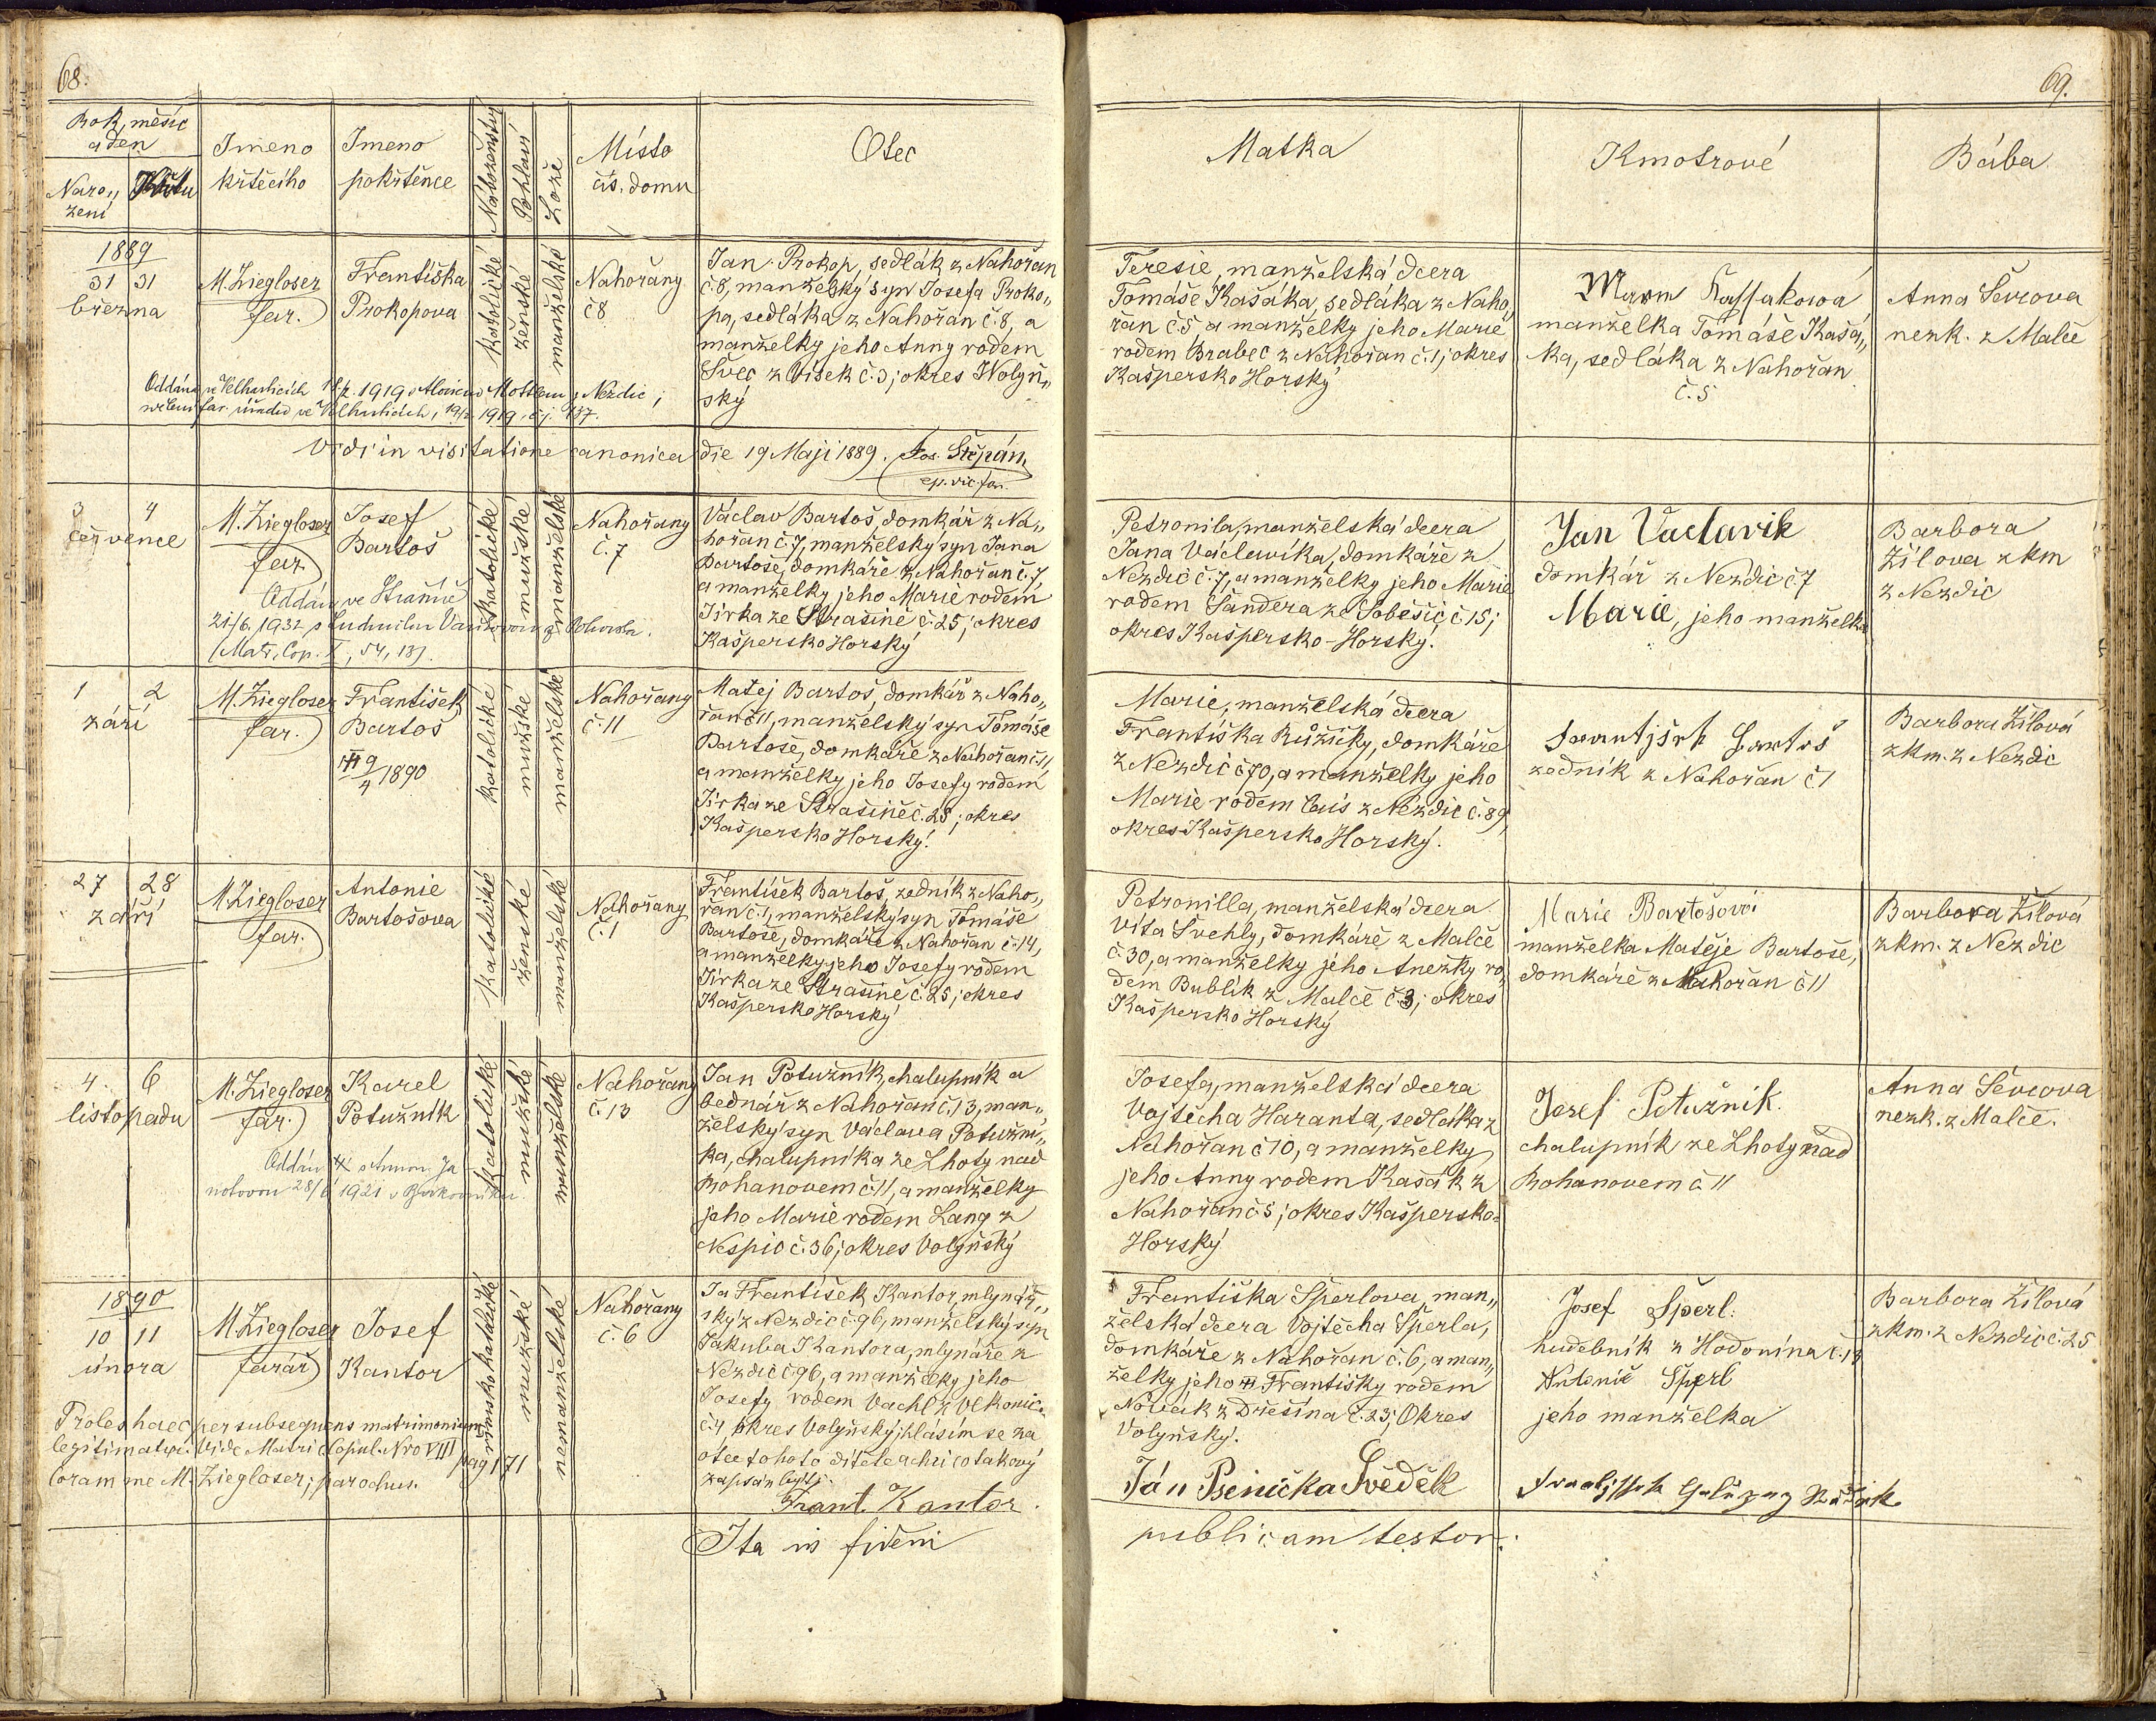 68.
Rok, měsíc
a den
Naro„
zení
Křtu
Jmeno
křtěcího
Jmeno
pokřtěnce
Náboženství
Pohlaví
Lože
Místo
čís. domu
Otec
1889
31 31
března
M. Ziegloser
far.
Františka
Prokopova
katolické
ženské
manželské
Nahořany
č 8
Jan Prokop, sedlák z Nahořan
č. 8, manželský syn Josefa Proko„
pa, sedláka z Nahořan č. 8, a
manželky jeho Anny rodem
Švec z Vísek č. 3; okres Wolyň„
ský
Oddána ve Velharticích 1919 z Nezdic;
far. úřadu ve Velharticích, 1919, č. j. 137.
Vidi in visitatione canonica die 19 Maji 1889. Jos. Štěpán,
ep. vic. for.
3 4
července
M. Ziegloser
far.
Josef
Bartoš
katolické
mužské
manželské
Nahořany
č. 7
Václav Bartoš, domkář z Na„
hořan č. 7, manželský syn Jana
Bartoše, domkáře z Nahořan č. 7,
a manželky jeho Marie rodem
Jirka ze Strašině č. 25; okres
Kašpersko Horský
Oddán ve
21/6. 1932 s Ludmilou
(Matr. Cop. X, 54, 13).
1 2
září
M. Ziegloser
far.
František
Bartoš
9/4 1890
katolické
mužské
manželské
Nahořany
č. 11
Matěj Bartoš, domkář z Naho„
řan č 11, manželský syn Tomáše
Bartoše, domkáře z Nahořan č. 11
a manželky jeho Josefy rodem
Jirka ze Strašině č. 25; okres
Kašpersko Horský.
27 28
září
M. Ziegloser
far.
Antonie
Bartošova
katolické
ženské
manželské
Nahořany
č. 1
František Bartoš, zedník z Naho„
řan č. 1, manželský syn Tomáše
Bartoše, domkáře z Nahořan č. 14,
a manželky jeho Josefy rodem
Jirka ze Strašině č. 25; okres
Kašpersko Horský
4. 6
listopadu
M. Ziegloser
far.
Karel
Potužník
katolické
mužské
manželské
Nahořany
č. 13
Jan Potužník, chalupník a
bednář z Nahořan č. 13, man„
želský syn Václava Potužní„
ka, chalupníka ze Lhoty nad
Rohanovem č. 11, a manželky
jeho Marie rodem Lang z
Nespic č. 36; okres Volyňský
Oddán
28/6 1921 v
1890
10 11
února
M. Ziegloser
farář
Josef
Kantor
římskokatolické
mužské
nemanželské
Nahořany
č. 6
Já František Kantor, mlynář„
ský z Nezdic č. 96, manželský syn
Jakuba Kantora, mlynáře z
Nezdic č 96, a manželky jeho
Josefy rodem Vachl z Vlkonic
č. 4 okres Volyňský, hlásím se za
otce tohoto dítěte a chci co takový
zapsán býti.
Frant. Kantor.
Proles haec per subsequens matrimonium
legitimatur. Vide Matric. Copul. Nro VIII pag 171
Coram me M. Ziegloser, parochus.
Ita in fidem
69.
Matka
Kmotrové
Bába
Teresie, manželská dcera
Tomáše Kašáka, sedláka z Naho„
řan č. 5 a manželky jeho Marie
rodem Brabec z Nahořan č. 1; okres
Kašpersko Horský
manželka Tomáše Kašá„
ka, sedláka z Nahořan
č. 5
Anna Ševcova
nezk. z Malče
Petronila, manželská dcera
Jana Václavíka, domkáře z
Nezdic č. 7, a manželky jeho Marie
rodem Šandera ze Soběšic č 15;
okres Kašpersko-Horský.
Jan Vaclavik
domkář z Nezdic č 7
Marie, jeho manželka
Barbora
Žílova zkm
z Nezdic
Marie, manželská dcera
Františka Růžičky, domkáře
z Nezdic č 70, a manželky jeho
Marie rodem Cais z Nezdic č. 89,
okres Kašpersko Horský.
Frantjšek Bartoš
zedník z Nahořan č 1
Barbora Žílová
zkm. z Nezdic
Petronilla, manželská dcera
Víta Švehly, domkáře z Malče
č. 30, a manželky jeho Anežky ro„
dem Bublík z Malče č 3; okres
Kašpersko Horský
Marie Bartošová
manželka Matěje Bartoše,
domkáře z Nahořan č 11
Barbora Žílová
zkm. z Nezdic
Josefa, manželská dcera
Vojtěcha Haranta, sedláka z
Nahořan č 10, a manželky
jeho Anny rodem Kašák z
Nahořan č 5; okres Kašpersko-
Horský
Josef Potužnik
chalupník ze Lhoty nad
Rohanovem č. 11
Anna Ševcova
nezk. z Malče.
Františka Šperlova, man„
želská dcera Vojtěcha Šperla,
domkáře z Nahořan č. 6, a man„
želky jeho Františky rodem
Novák z Dřešína č. 23; Okres
Volyňský.
Josef Šperl.
hudebník z Hodonína č. 13
Antonie Šperl
jeho manželka
Barbora Žílová
zkm. z Nezdic č. 25
Ján Psenička Svědek
publicam testor.